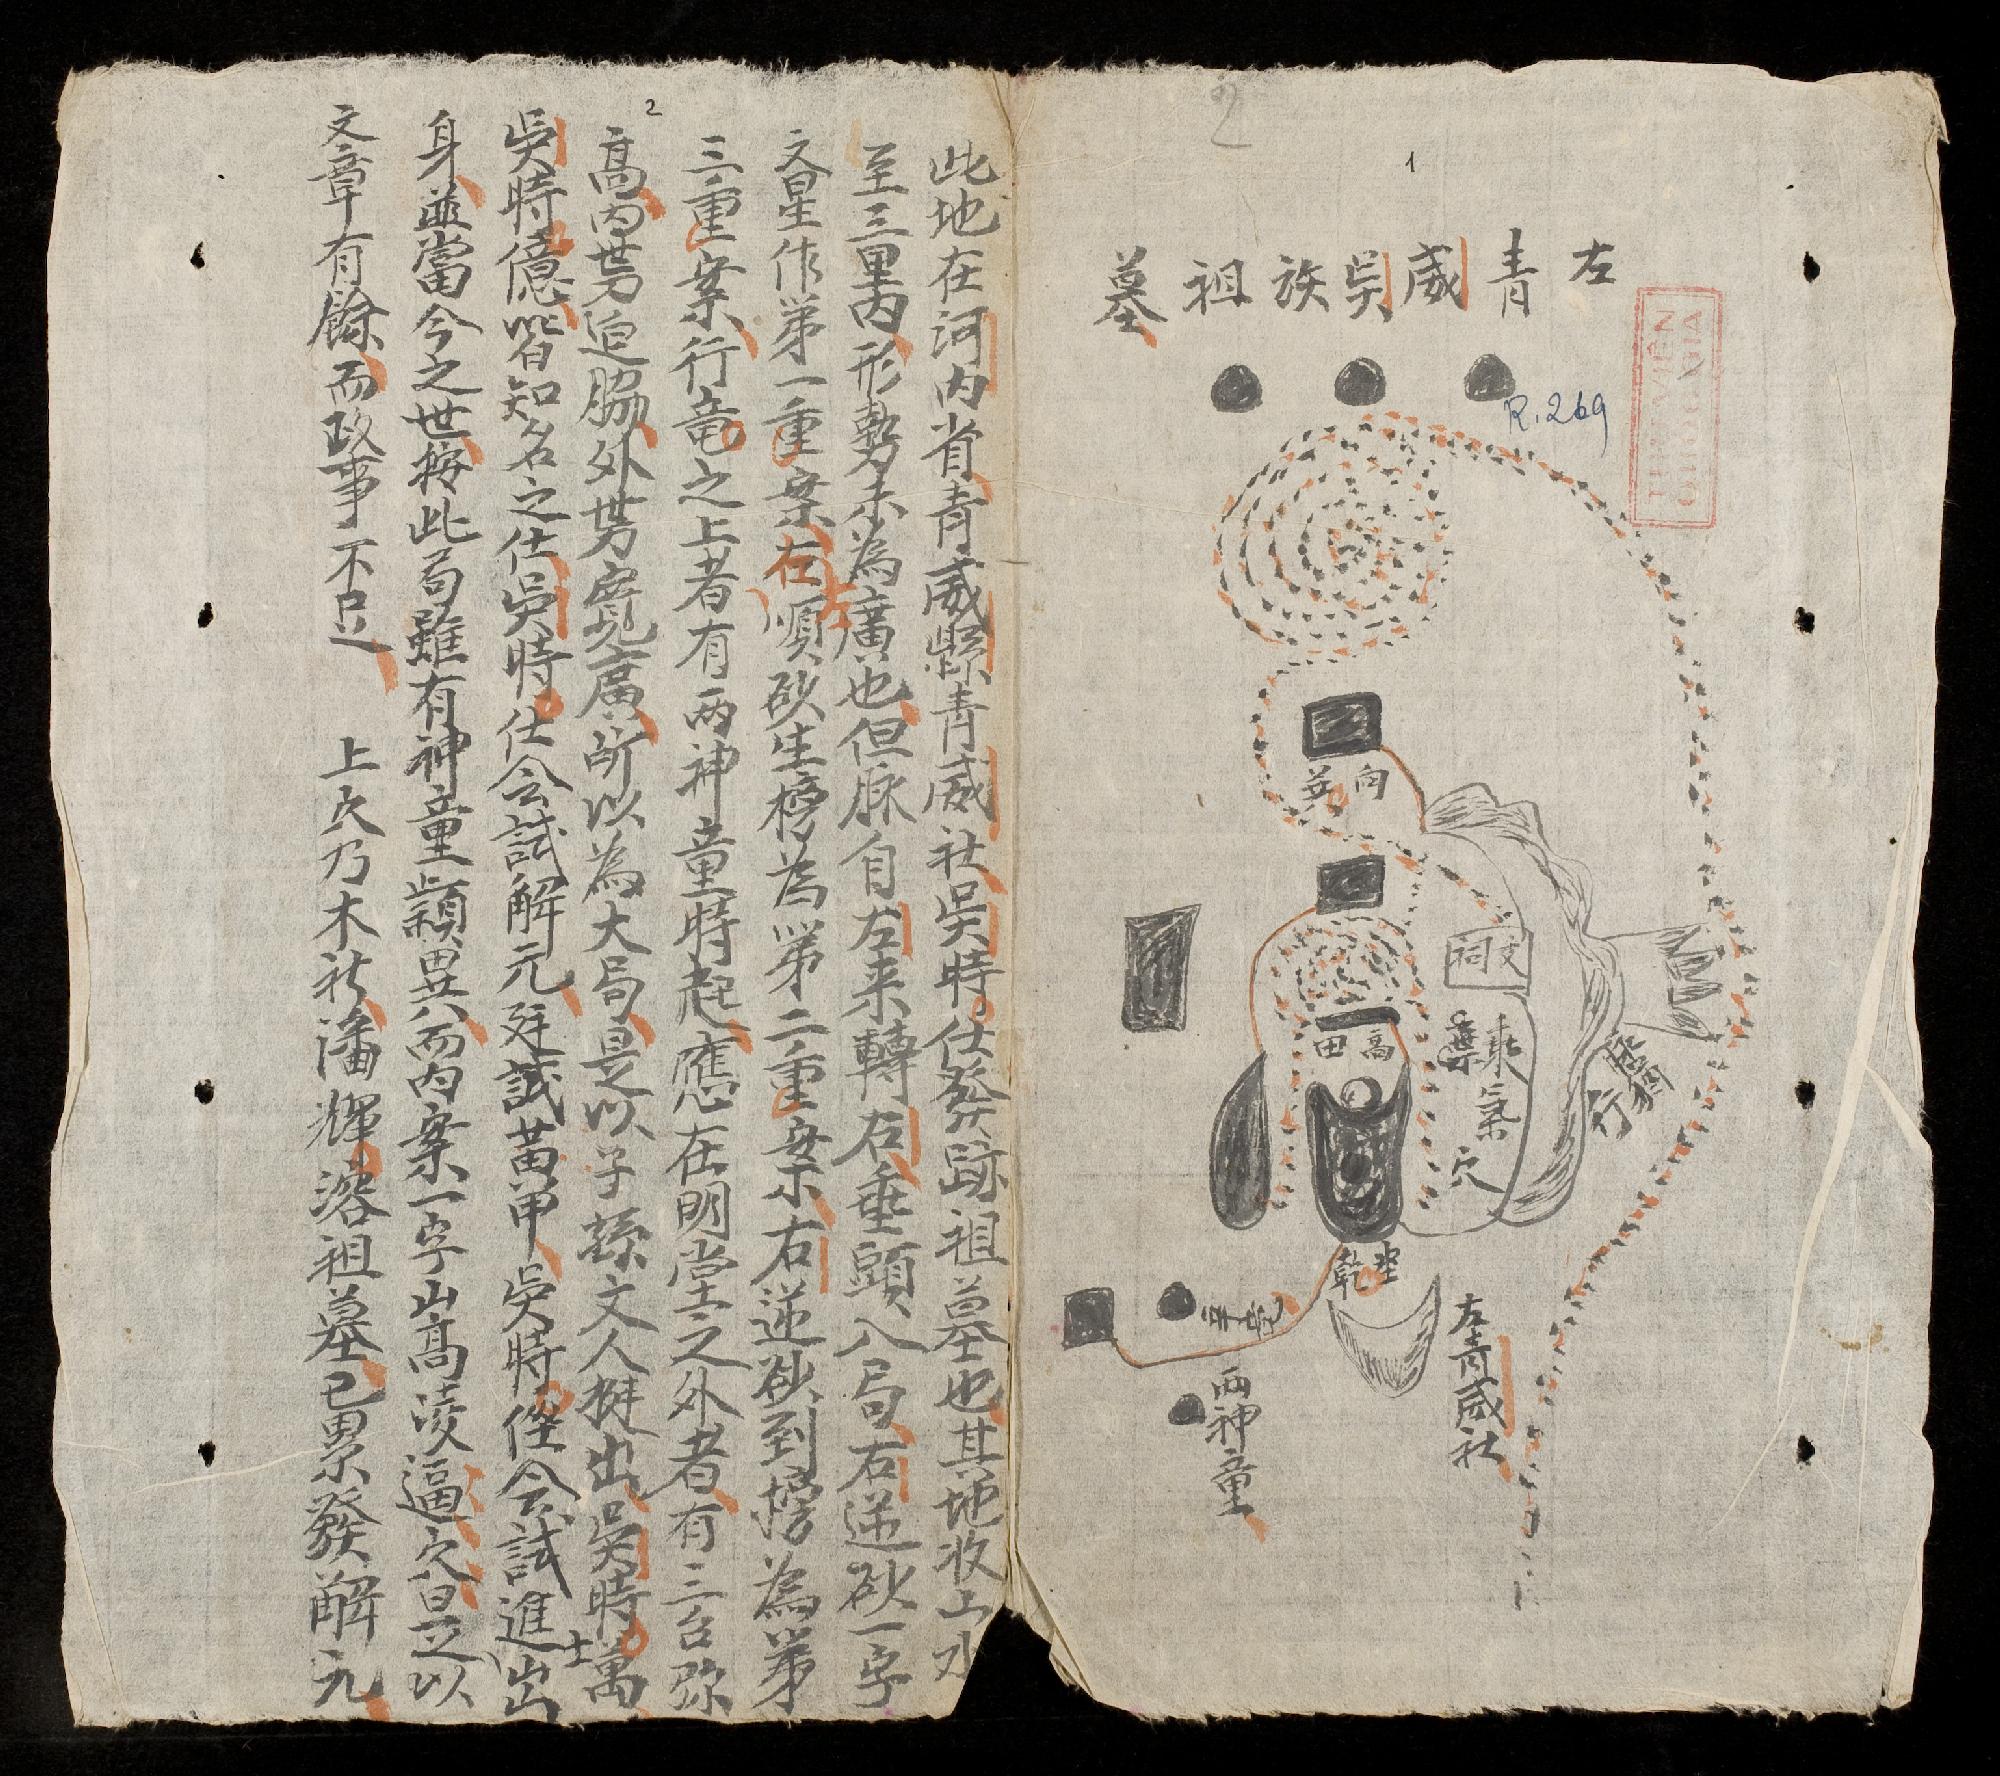 1
左青威吳族祖墓
THƯ VIỆN
QUỐC GIA
R.269
向
高田
支祠
乘氣穴
坐乾
左青威社
兩神童
2
此地在河内省青威縣青威社吳時仕發跡祖墓也其地收山水
至三里内形勢未為廣也但脉自左来轉右垂頭入局右逆砂一字
文星作第一重案左順砂生榜為第二重案右逆砂到榜為第
三重案行竜之上者有兩神童時起應在明堂之外者有三台弥
高内势迫脇外势寬廣所以為大局是以子孫文人挺出吳時萬
吳時億皆知名之仕吳時仕会試解元廷試黄甲吳時任会試進士出
身並當今之世按此局雖有神童穎異而内案一字山高凌逼穴皆立以
文章有餘而政事不足 上穴乃木社潘輝溶祖墓已累發解元